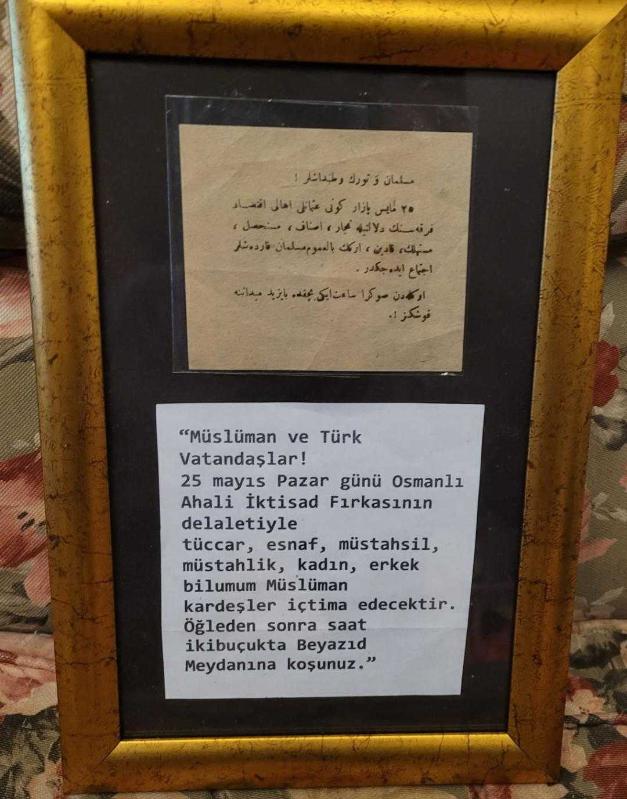 مسلمان و تورك وطنداشلر !
٢٥ مايس پازار كونى عثمانلى اهالى اقتصاد
فرقه‌سنك دلالتيله تجار ، اصناف ، مستحصل ،
مستهلك ، قادين ، اركك بالعموم مسلمان قارده‌شلر
اجتماع ايده‌جكدر .
اوكله‌دن صوكرا ساعت ايكى بچقده بايزيد ميداننه
قوشكز !.
“Müslüman ve Türk
Vatandaşlar!
25 mayıs Pazar günü Osmanlı
Ahali İktisad Fırkasının
delaletiyle
tüccar, esnaf, müstahsil,
müstahlik, kadın, erkek
bilumum Müslüman
kardeşler içtima edecektir.
Öğleden sonra saat
ikibuçukta Beyazıd
Meydanına koşunuz.”